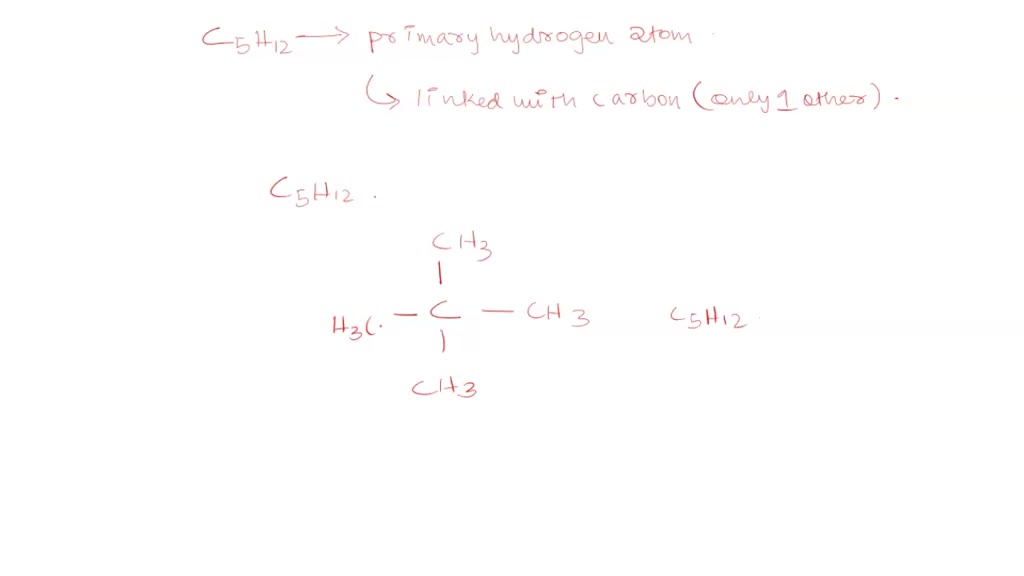 C5H12 → primary hydrogen atom
↳ linked with carbon (only 1 other).
C5H12.
CH3
|
H3C. — C — CH3 C5H12
|
CH3